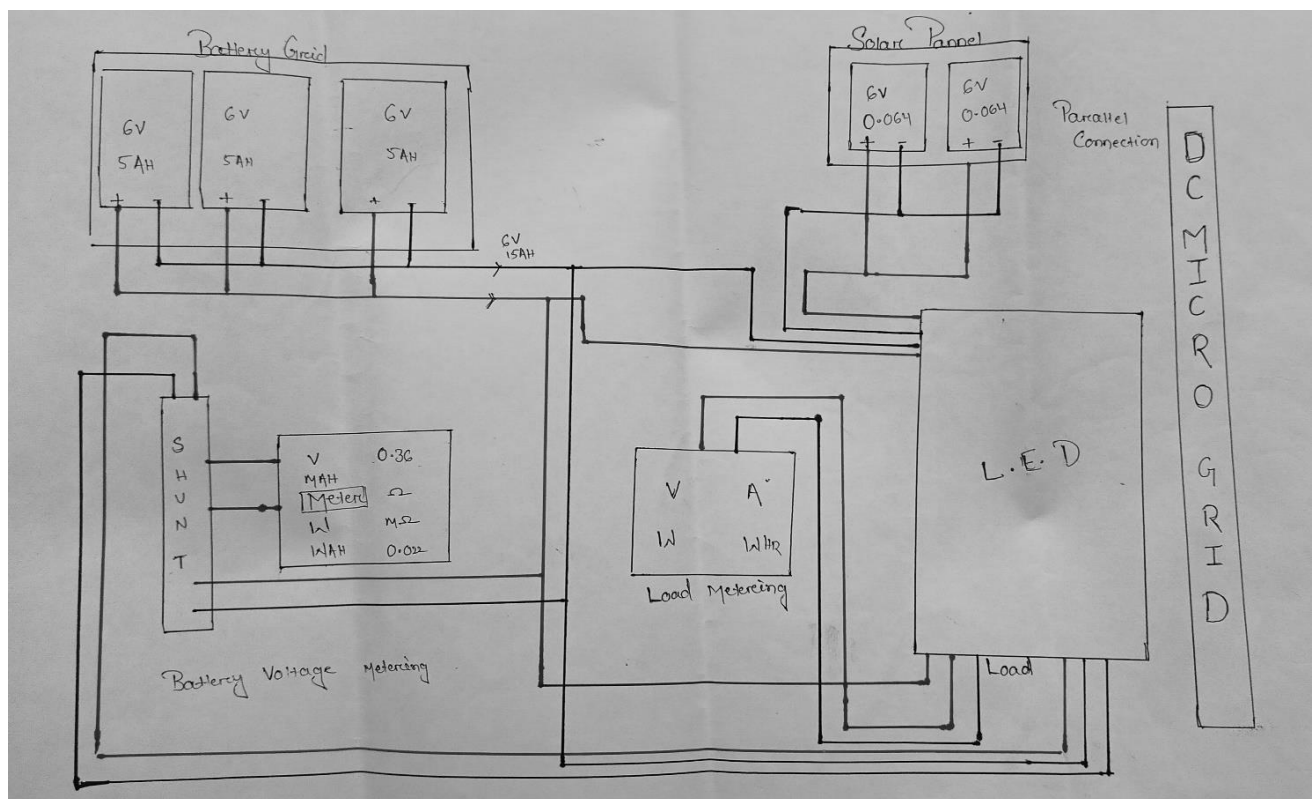 Battery Greid
6V
5AH
+ -
6V
5AH
+ -
6V
5AH
+ -
6V
15AH
Solar Pannel
6V
0.064
+ -
6V
0.064
+ -
Parallel
Connection
DC MICRO GRID
SHUNT
V 0.36
MAH
Meter Ω
W MΩ
WAH 0.022
Battery Voltage Metering
V A
W WHR
Load Metering
L.E.D
Load